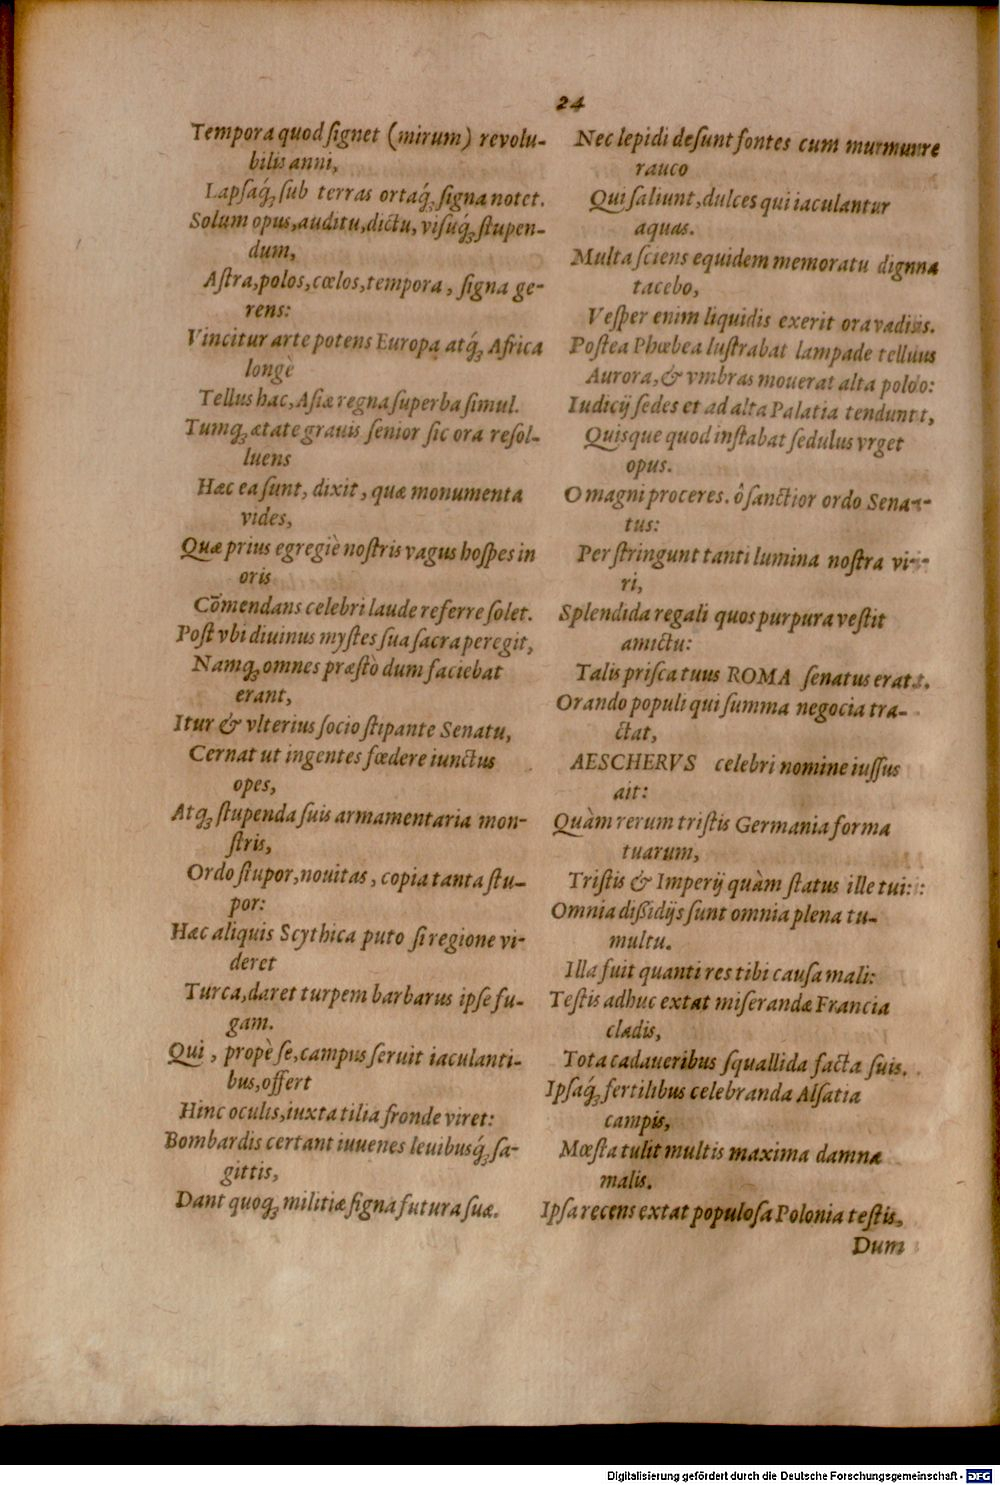 24
Tempora quod ſignet (mirum) revolu-
bilis anni,
Lapſaq́; ſub terras ortaq́; ſigna notet.
Solum opus, auditu, dictu, viſuq́; ſtupen-
dum,
Aſtra, polos, cœlos, tempora, ſigna ge-
rens:
Vincitur arte potens Europa atq́; Africa
longè
Tellus hac, Aſiæ regna ſuperba ſimul.
Tumq; ætate grauis ſenior ſic ora reſol-
luens
Hæc ea ſunt, dixit, quæ monumenta
vides,
Quæ prius egregiè noſtris vagus hoſpes in
oris
Cōmendans celebri laude referre ſolet.
Poſt vbi diuinus myſtes ſua ſacra peregit,
Namq; omnes præſtò dum faciebat
erant,
Itur & vlterius ſocio ſtipante Senatu,
Cernat ut ingentes fœdere iunctus
opes,
Atq; ſtupenda ſuis armamentaria mon-
ſtris,
Ordo ſtupor, nouitas, copia tanta ſtu-
por:
Hæc aliquis Scythica puto ſi regione vi-
deret
Turca, daret turpem barbarus ipſe fu-
gam.
Qui, propè ſe, campus ſeruit iaculanti-
bus, offert
Hinc oculis, iuxta tilia fronde viret:
Bombardis certant iuuenes leuibusq́; ſa-
gittis,
Dant quoq; militiæ ſigna futura ſuæ.
Nec lepidi deſunt fontes cum murmure
rauco
Qui ſaliunt, dulces qui iaculantur
aquas.
Multa ſciens equidem memoratu digna
tacebo,
Veſper enim liquidis exerit ora vadis.
Poſtea Phœbea luſtrabat lampade tellus
Aurora, & vmbras mouerat alta polo:
Iudicij ſedes et ad alta Palatia tendunt,
Quisque quod inſtabat ſedulus vrget
opus.
O magni proceres. ô ſanctior ordo Sena-
tus:
Per ſtringunt tanti lumina noſtra vi-
ri,
Splendida regali quos purpura veſtit
amictu:
Talis priſca tuus ROMA ſenatus erat.
Orando populi qui ſumma negocia tra-
ctat,
AESCHERVS celebri nomine iuſſus
ait:
Quàm rerum triſtis Germania forma
tuarum,
Triſtis & Imperij quàm ſtatus ille tui:
Omnia dißidijs ſunt omnia plena tu-
multu.
Illa fuit quanti res tibi cauſa mali:
Teſtis adhuc extat miſerandæ Francia
cladis,
Tota cadaueribus ſquallida facta ſuis.
Ipſaq́; fertilibus celebranda Alſatia
campis,
Mœſta tulit multis maxima damna
malis.
Ipſa recens extat populoſa Polonia teſtis,
Dum
Digitalisierung gefördert durch die Deutsche Forschungsgemeinschaft - DFG